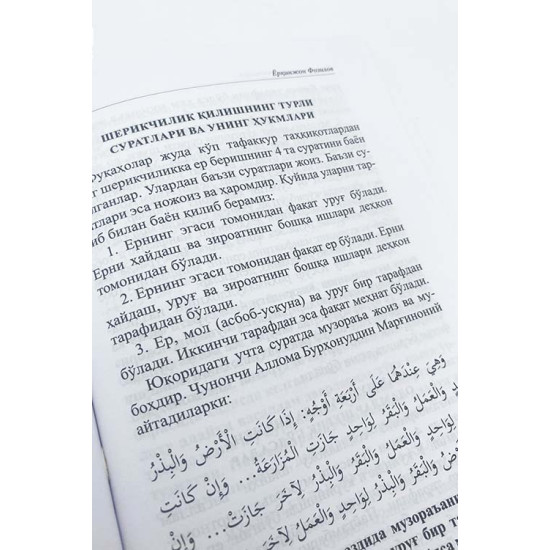 Ёрқинжон Фозилов
ШЕРИКЧИЛИК ҚИЛИШНИНГ ТУРЛИ
СУРАТЛАРИ ВА УНИНГ ҲУКМЛАРИ
руқаҳолар жуда кўп тафаккур таҳқиқотлардан
г шерикчиликка ер беришнинг 4 та суратини баён
лганлар. Улардан баъзи суратлари жоиз. Баъзи су-
тлари эса ножоиз ва ҳаромдир. Қуйида уларни тар-
иб билан баён қилиб берамиз:
1. Ернинг эгаси томонидан фақат уруғ бўлади.
Ерни ҳайдаш ва зироатнинг бошқа ишлари деҳқон
томонидан бўлади.
2. Ернинг эгаси томонидан фақат ер бўлади. Ерни
ҳайдаш, уруғ ва зироатнинг бошқа ишлари деҳқон
тарафидан бўлади.
3. Ер, мол (асбоб-ускуна) ва уруғ бир тарафдан
бўлади. Иккинчи тарафдан эса фақат меҳнат бўлади.
Юқоридаги учта суратда музораъа жоиз ва му-
боҳдир. Чунончи Аллома Бурҳонуддин Марғиноний
айтадиларки:
وَهِيَ عِنْدَهُمَا عَلَى أَرْبَعَةِ أَوْجُهٍ: إِذَا كَانَتِ الْأَرْضُ وَالْبِذْرُ
لِوَاحِدٍ وَالْعَمَلُ وَالْبَقَرُ لِوَاحِدٍ جَازَتِ الْمُزَارَعَةُ... وَإِنْ كَانَتِ
لِوَاحِدٍ وَالْعَمَلُ وَالْبَقَرُ وَالْبِذْرُ لِآخَرَ جَازَتْ... وَإِنْ
وَالْبَقَرُ وَالْبِذْرُ لِوَاحِدٍ وَالْعَمَلُ لِآخَرَ
музораъани
уруғ бир та